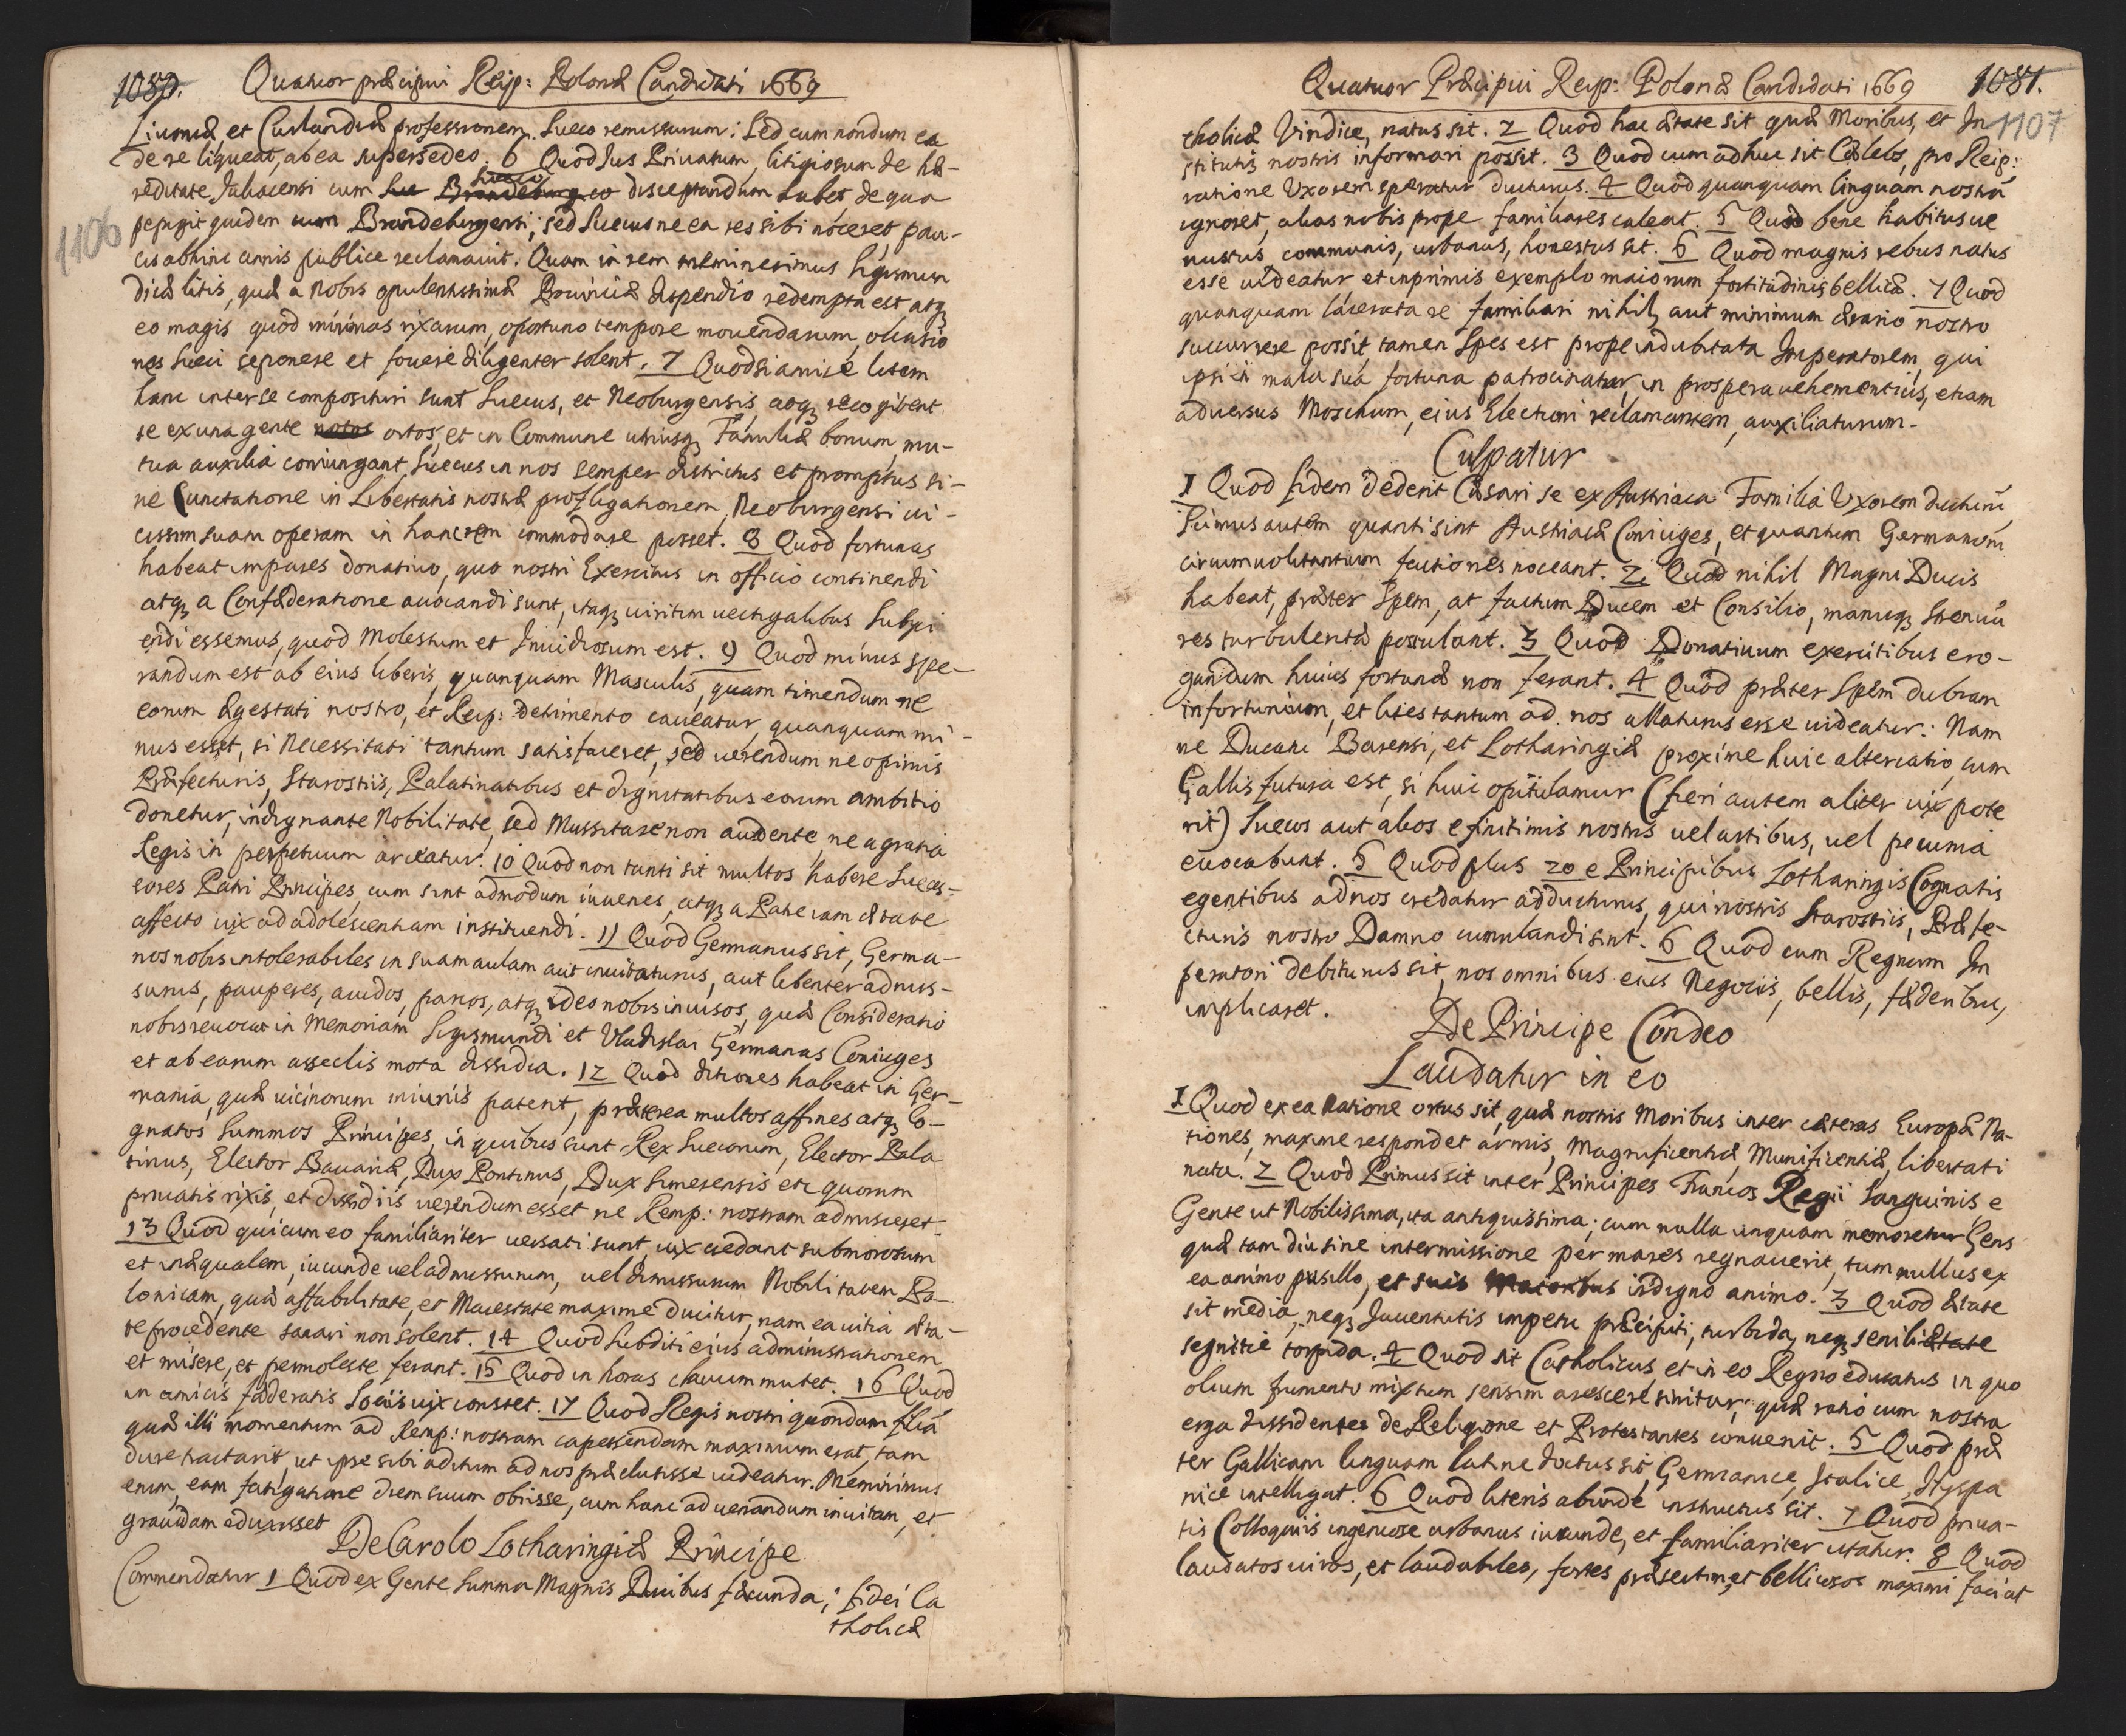 1080. Quatuor præcipui Reip: Polonæ Candidati 1669
Livoniæ et Curlandiæ professionem Sueco remissurum: Sed cum nondum ea
de re liqueat, ab ea supersedeo. 6 Quod Jus Privatum, litigiosum de hæ-
reditate Juliacensi cum Sueco disceptandum habet de qua
1106
pepigit quidem cum Brandeburgensi; sed Suecus ne ea res sibi noceret, pau-
cis abhinc annis publice reclamavit. Quam in rem meminerimus Sigismun
diæ litis, quæ a Nobis opulentissimæ Provinciæ dispendio redempta est atq;
eo magis quod minimas rixarum, oportuno tempore movendarum, occasio
nes Sueci seponere et fovere diligenter solent. 7 Quod si amice litem
hanc inter se composituri sunt Suecus, et Neoburgensis, atq; recogitent
se ex una gente natos ortos, et in Commune utriusq; Familiæ bonum, mu-
tua auxilia coniungant, Suecus in nos semper districtus et promptus si-
ne Cunctatione in Libertatis nostræ profligationem, Neoburgensi vi-
cissim suam operam in hanc rem commodare posset. 8 Quod fortunas
habeat impares donativo, quo nostri Exercitus in officio continendi
atq; a Confæderatione avocandi sunt, itaq; viritim vectigalibus Subyci
endi essemus, quod Molestum et Invidiosum est. 9 Quod minus spe-
randum est ab eius liberis, quanquam Masculis, quam timendum ne
eorum ægestati nostro, et Reip: detrimento caveatur, quanquam mi-
nus esset, si Necessitati tantum satisfaceret, sed verendum ne opimis
Præfecturis, Starostiis, Palatinatibus et dignitatibus eorum ambitio
donetur, indignante Nobilitate, sed Mussitare non audente, ne a gratia
Regis in perpetuum arceatur. 10 Quod non tanti sit multos habere Succes-
sores Patri Principes, cum sint admodum iuvenes, atq; a Patre iam ætate
affecto vix ad adolescentiam instituendi. 11 Quod Germanus sit, Germa-
nos nobis intolerabiles in suam aulam aut invitaturus, aut libenter admis-
surus, pauperes, avidos, parcos, atq; ideo nobis invisos, quæ Consideratio
nobis revocat in Memoriam Sigismundi et Vladislai Germanas Coniuges
et ab earum asseclis mota dissidia. 12 Quod ditiones habeat in Ger-
mania, quæ vicinorum iniuriis patent, præterea multos affines atq; Co-
gnatos Summos Principes, in quibus sunt Rex Suecorum, Elector Pala
tinus, Elector Bavariæ, Dux Pontinus, Dux Simerensis etc quorum
privatis rixis, et dissidiis verendum esset ne Remp: nostram admisceret
13 Quod qui cum eo familiariter versati sunt, vix credant submorosum
et inæqualem, iucunde vel admissurum, vel dimissurum Nobilitatem Po-
lonicam, quæ affabilitate, et Maiestate maxime ducitur, nam ea vitia æta-
te procedente sanari non solent. 14 Quod Subditi eius administrationem
et misere, et permoleste ferant. 15 Quod in horas clavum mutet. 16 Quod
in amicis fæderatis Sociis vix constet. 17 Quod Regis nostri quondam filia
quæ illi momentum ad Remp: nostram capessendam maximum erat, tam
dure tractarit, ut ipse sibi aditum ad nos præclusisse videatur. Meminimus
enim, eam fatigatione diem suum obiisse, cum hanc ad venandum invitam, et
gravidam eduxisset
De Carolo Lotharingiæ Principe
Commendatur 1 Quod ex Gente Summa Magnis Ducibus fæcunda, Fidei Ca
tholicæ
Quatuor Præcipui Reip: Polonæ Candidati 1669 1081.
tholicæ Vindice, natus sit. 2 Quod hac ætate sit quæ Moribus, et In
1107
stitutis nostris informari possit. 3 Quod cum adhuc sit Cælebs, pro Reip:
ratione Uxorem speratur ducturus. 4 Quod quanquam linguam nostrã
ignoret, alias nobis prope familiares caleat. 5 Quod bene habitus ve
nustus communis, urbanus, honestus sit. 6 Quod magnis rebus natus
esse videatur et inprimis exemplo maiorum fortitudinis bellicæ. 7 Quod
quanquam lacerata re familiari nihil, aut minimum ærario nostro
succurrere possit, tamen Spes est prope indubitata Imperatorem, qui
ipsi in mala sua fortuna patrocinatur, in prospera vehementius, etiam
adversus Moschum, eius Electioni reclamantem, auxiliaturum.
Culpatur
1 Quod fidem dederit Cæsari se ex Austriaca Familia Uxorem ducturũ
Scimus autem quanti sint Austriacæ Coniuges, et quantum Germanorũ
circumvolitantium factiones noceant. 2 Quod nihil Magni Ducis
habeat, præter Spem, at factum Ducem et Consilio, manuq; Strenuũ
res turbulentæ postulant. 3 Quod Donativum exercitibus ero-
gandum huius fortunæ non ferant. 4 Quod præter Spem dubiam
infortunium, et lites tantum ad nos allaturus esse videatur: Nam
ne Ducatu Barensi, et Lotharingiæ proxime huic altercatio cum
Gallis futura est, si huic opitulamur (fieri autem aliter vix pote
rit) Suecos aut alios e finitimis nostris vel artibus, vel pecunia
evocabunt. 5 Quod plus 20 e Principibus Lotharingis Cognatis
egentibus ad nos credatur adducturus, qui nostris Starostiis, Præfe-
cturis nostro Damno cumulandi sint. 6 Quod cum Regnum Im
peratori debiturus sit, nos omnibus eius Negociis, bellis, fæderibus,
implicaret.
De Principe Condeo
Laudatur in eo
1 Quod ex ea Natione ortus sit, quæ nostris Moribus inter cæteras Europæ Na-
tiones, maxime respondet armis, Magnificentiæ, Munificentiæ, libertati
nata. 2 Quod Primus sit inter Principes Francos Regii Sanguinis e
Gente ut Nobilissima, ita antiquissima; cum nulla unquam memoretur Gens
quæ tam diu sine intermissione per mares regnaverit, tum nullus ex
ea animo pusillo, et suis Maioribus indigno animo. 3 Quod ætate
sit media, neq; Juventutis impetu præcipiti, turbida, neq; senili ætate
segnitie torpida. 4 Quod sit Catholicus, et in eo Regno educatus in quo
olium frumento mixtum sensim arescere sinitur, quæ ratio cum nostra
erga dissidentes de Religione et Protestantes convenit. 5 Quod præ
ter Gallicam linguam latine doctus sit, Germanice, Italice, Hyspa
nice intelligat. 6 Quod literis abunde instructus sit. 7 Quod priva-
tis Colloquiis ingeniose urbanus iucunde, et familiariter utatur. 8 Quod
laudatos viros, et laudabiles, fortes præsertim, et bellicosos maximi faciat